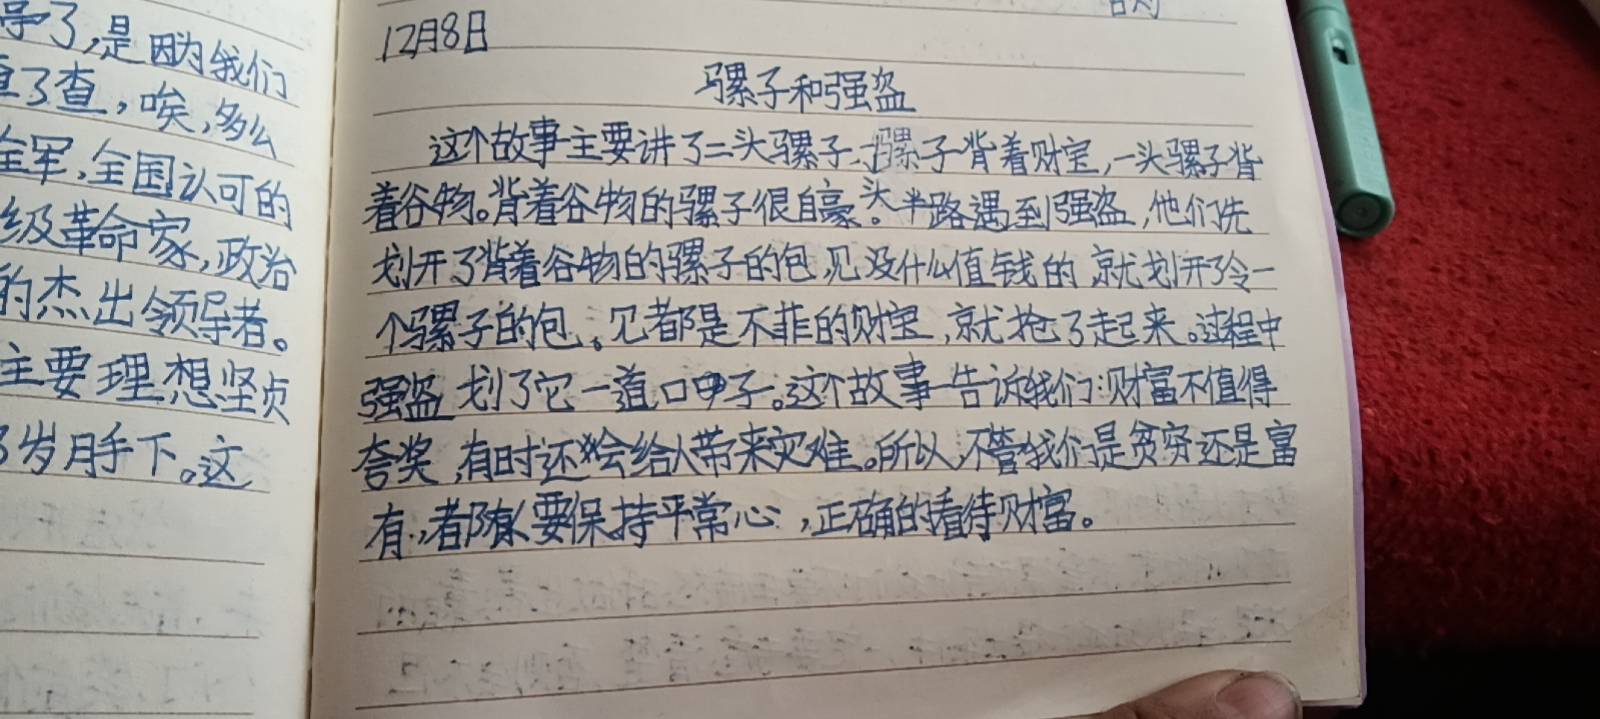 了,是因为我们
了查,唉,多么
全军,全国认可的
级革命家,政治
的杰出领导者。
主要理想坚贞
岁月手下。这
12月8日
骡子和强盗
这个故事主要讲了二头骡子、骡子背着财宝,一头骡子背
着谷物。背着谷物的骡子很自豪。半路遇到强盗,他们先
头
划开了背着谷物的骡子的包,见没什么值钱的,就划开了令一
个骡子的包。见都是不菲的财宝,就抢了起来。过程中
强盗划了它一道口子。这个故事告诉我们:财富不值得
夸奖,有时还会给人带来灾难。所以,不管我们是贫穷还是富
有,都要保持平常心,正确的看待财富。